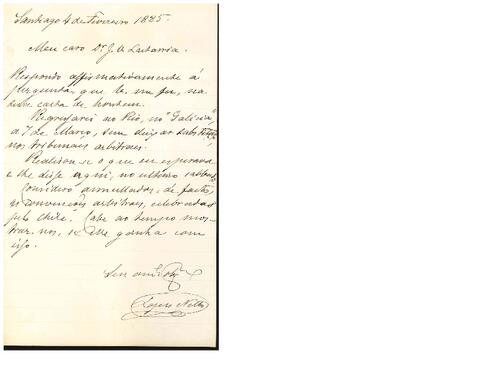 Santiago 4 de Fevereiro 1885.
Meu caro Dr. J. V. Lastarria.
Respondo affirmativamente á
pergunta, que le me faz, na
sua carta de hontem.
Regressarei ao Rio, no "Galicia",
a 7 de Março, sem deixar substituto
nos tribunaes arbitraes.
Realisou-se o que eu esperava
e lhe disse aqui, no ultimo
Considero annulladas, de facto,
as convenções arbitraes, celebradas
pelo Chile. Cabe ao tempo mos-
trar-nos, se elle ganha com
isso.
Seu am.
Lopes Netto